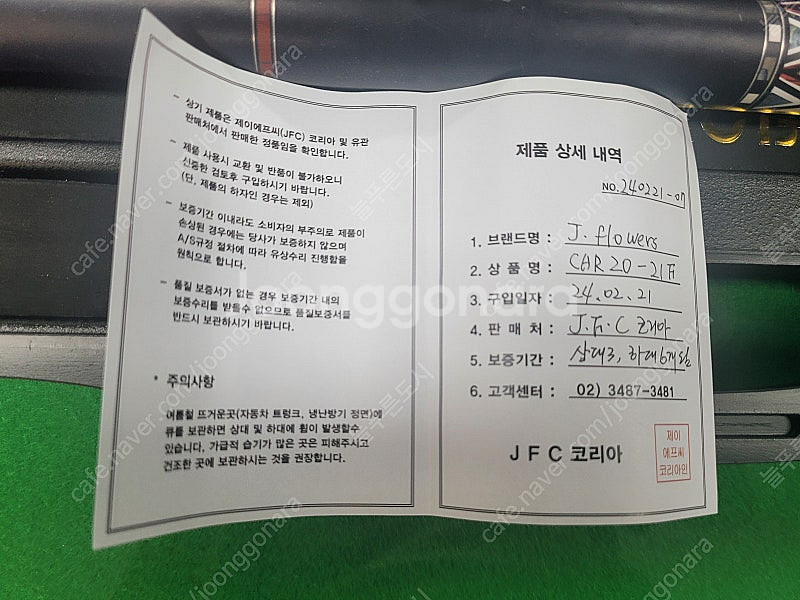 - 상기 제품은 제이에프씨(JFC) 코리아 및 유관
판매처에서 판매한 정품임을 확인합니다.
- 제품 사용시 교환 및 반품이 불가하오니
신중한 검토후 구입하시기 바랍니다.
(단, 제품의 하자인 경우는 제외)
- 보증기간 이내라도 소비자의 부주의로 제품이
손상된 경우에는 당사가 보증하지 않으며
A/S규정 절차에 따라 유상수리 진행함을
원칙으로 합니다.
- 품질 보증서가 없는 경우 보증기간 내의
보증수리를 받을수 없으므로 품질보증서를
반드시 보관하시기 바랍니다.
* 주의사항
여름철 뜨거운곳(자동차 트렁크, 냉난방기 정면)에
큐를 보관하면 상대 및 하대에 휨이 발생할수
있습니다. 가급적 습기가 많은 곳은 피해주시고
건조한 곳에 보관하시는 것을 권장합니다.
제품 상세 내역
NO. 240221-07
1. 브랜드명 : J. flowers
2. 상 품 명 : CAR 20-21F
3. 구입일자 : 24.02.21
4. 판 매 처 : J.F.C 코리아
5. 보증기간 : 상대3, 하대6개월
6. 고객센터 : 02) 3487-3481
JFC 코리아
제이
에프씨
코리아인
joonggonara
cafe.naver.com/joonggonara
블루푸른도시